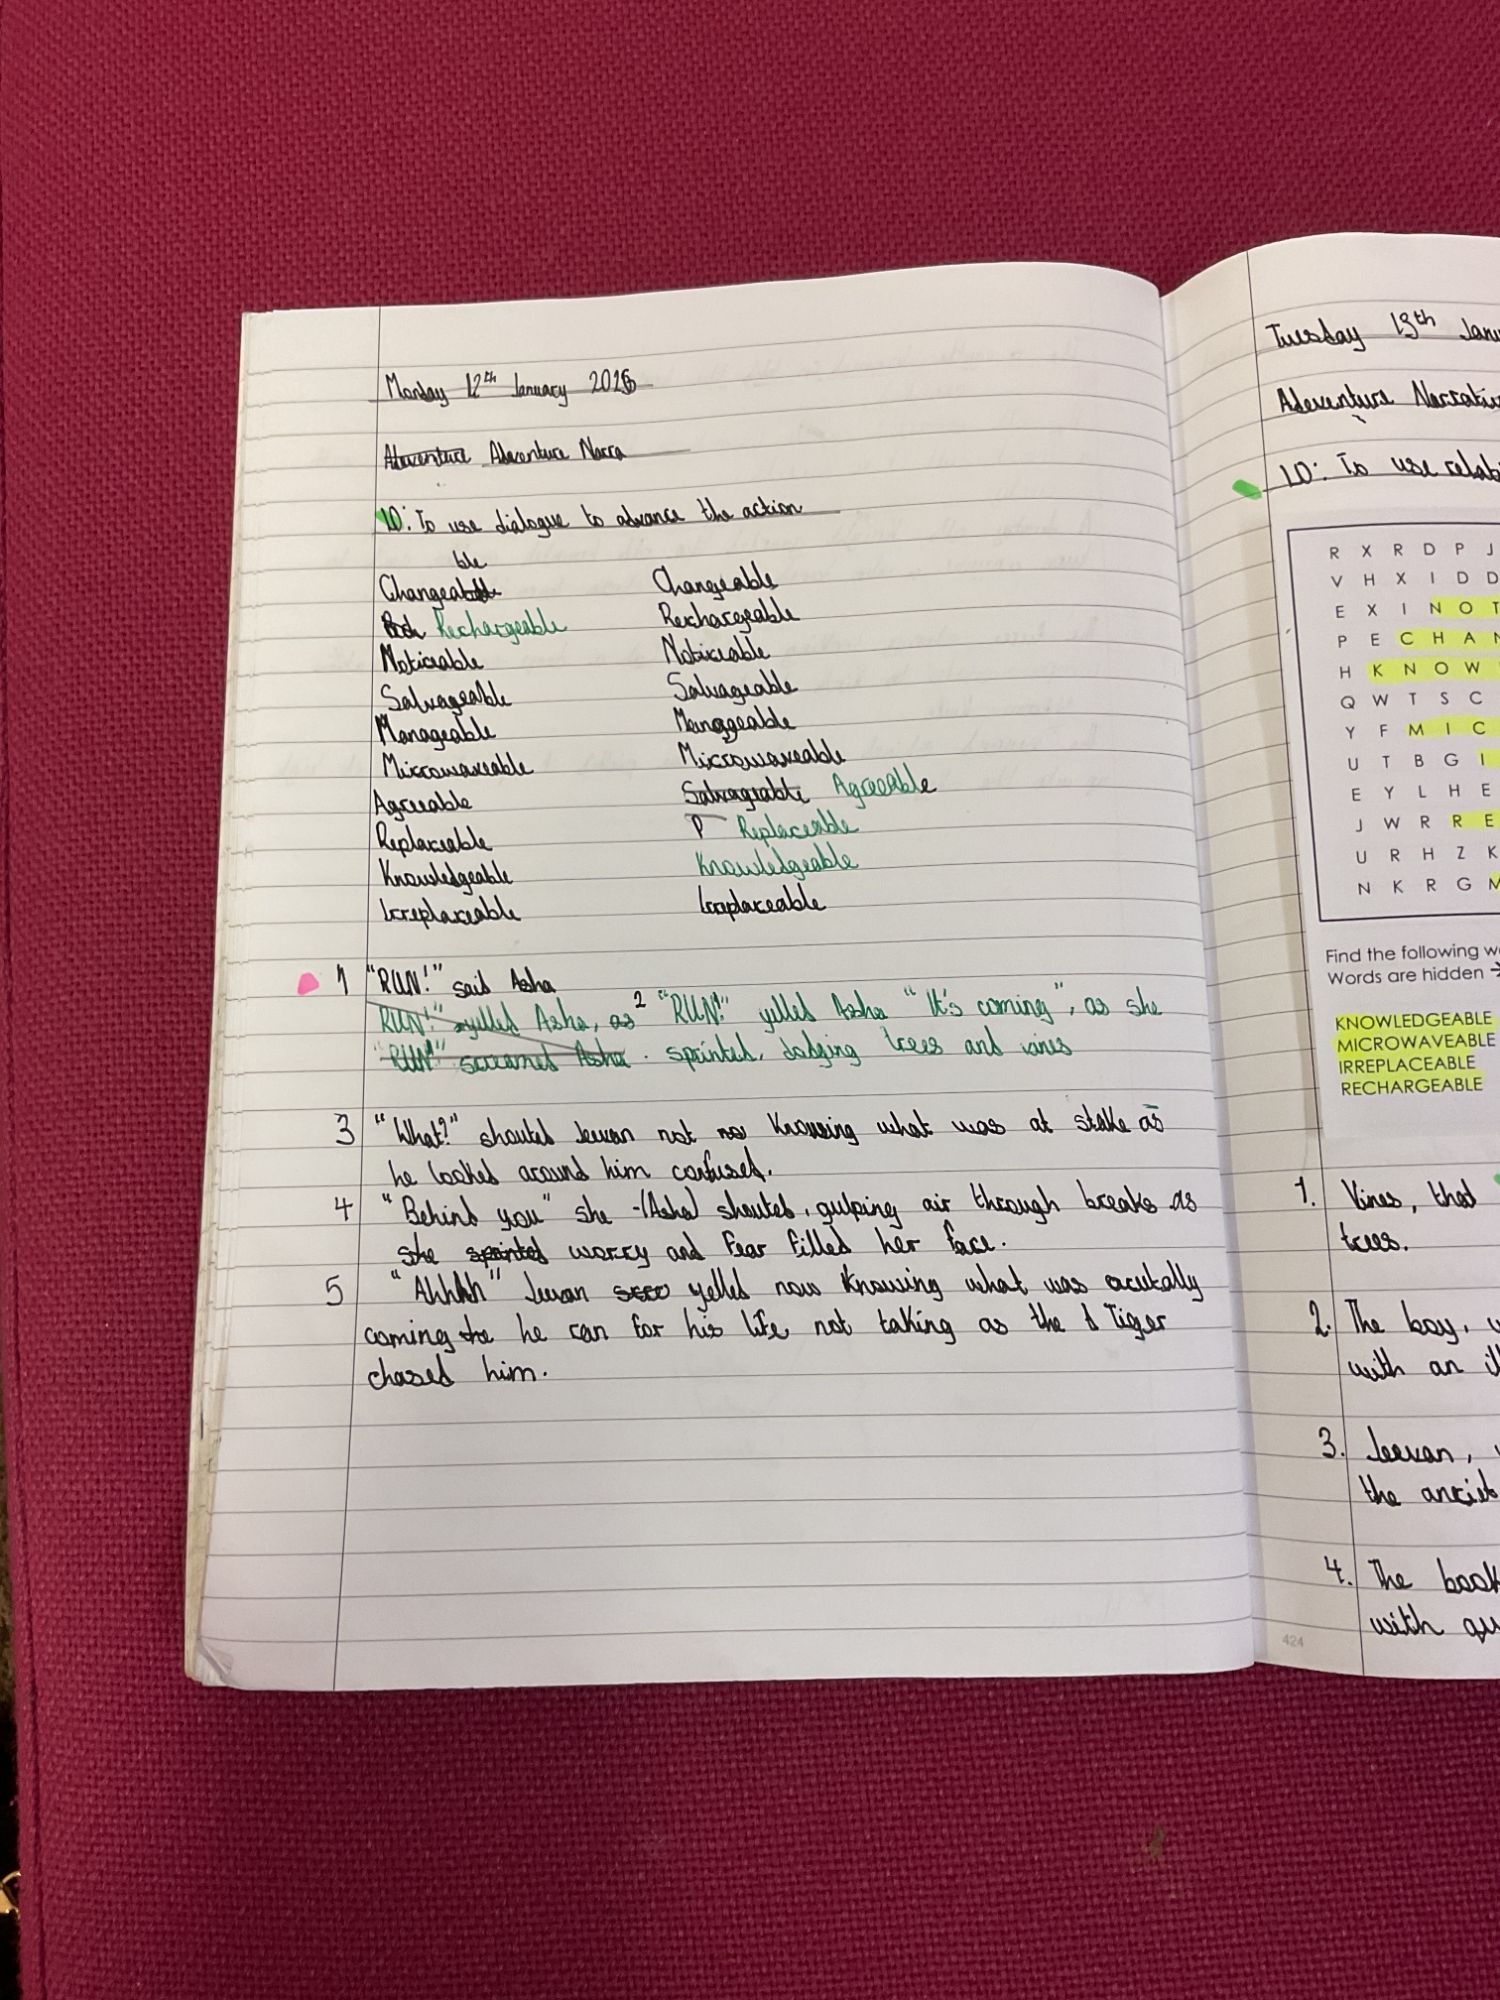 Monday 12th January 2026
Adeventure Adeventure Narra
LO: To use dialogue to advance the action
ble
Changeable Changeable
Rechargeable Rechargeable
Noticeable Noticeable
Salvageable Salvageable
Manageable Manageable
Microwaveable Microwaveable
Agreeable Salvageable Agreeable
Replaceable P Replaceable
Knowledgeable Knowledgeable
Irreplaceable Irreplaceable
1 "RUN!" said Asha
RUN!" yelled Asha, as 2 "RUN!" yelled Asha "It's coming", as she
"RUN!" screamed Asha. sprinted, dodging trees and vines
3 "What?" shouted Jeevan not no knowing what was at stake as
he looked around him confused.
4 "Behind you" she (Asha) shouted, gulping air through breaks as
she sprinted worry and fear filled her face.
5 "AhhAh" Jeevan yelled now knowing what was acutally
coming he ran for his life, not taking as the Tiger
chased him.
Tuesday 13th Janu
Adeventure Narrativ
LO: To use relati
R X R D P J
V H X I D D
E X I N O T
P E C H A N
H K N O W
Q W T S C
Y F M I C
U T B G I
E Y L H E
J W R R E
U R H Z K
N K R G M
Find the following w
Words are hidden →
KNOWLEDGEABLE
MICROWAVEABLE
IRREPLACEABLE
RECHARGEABLE
1. Vines, that
trees.
2. The boy, w
with an ill
3. Jeevan,
the
4. The book
with qu
424